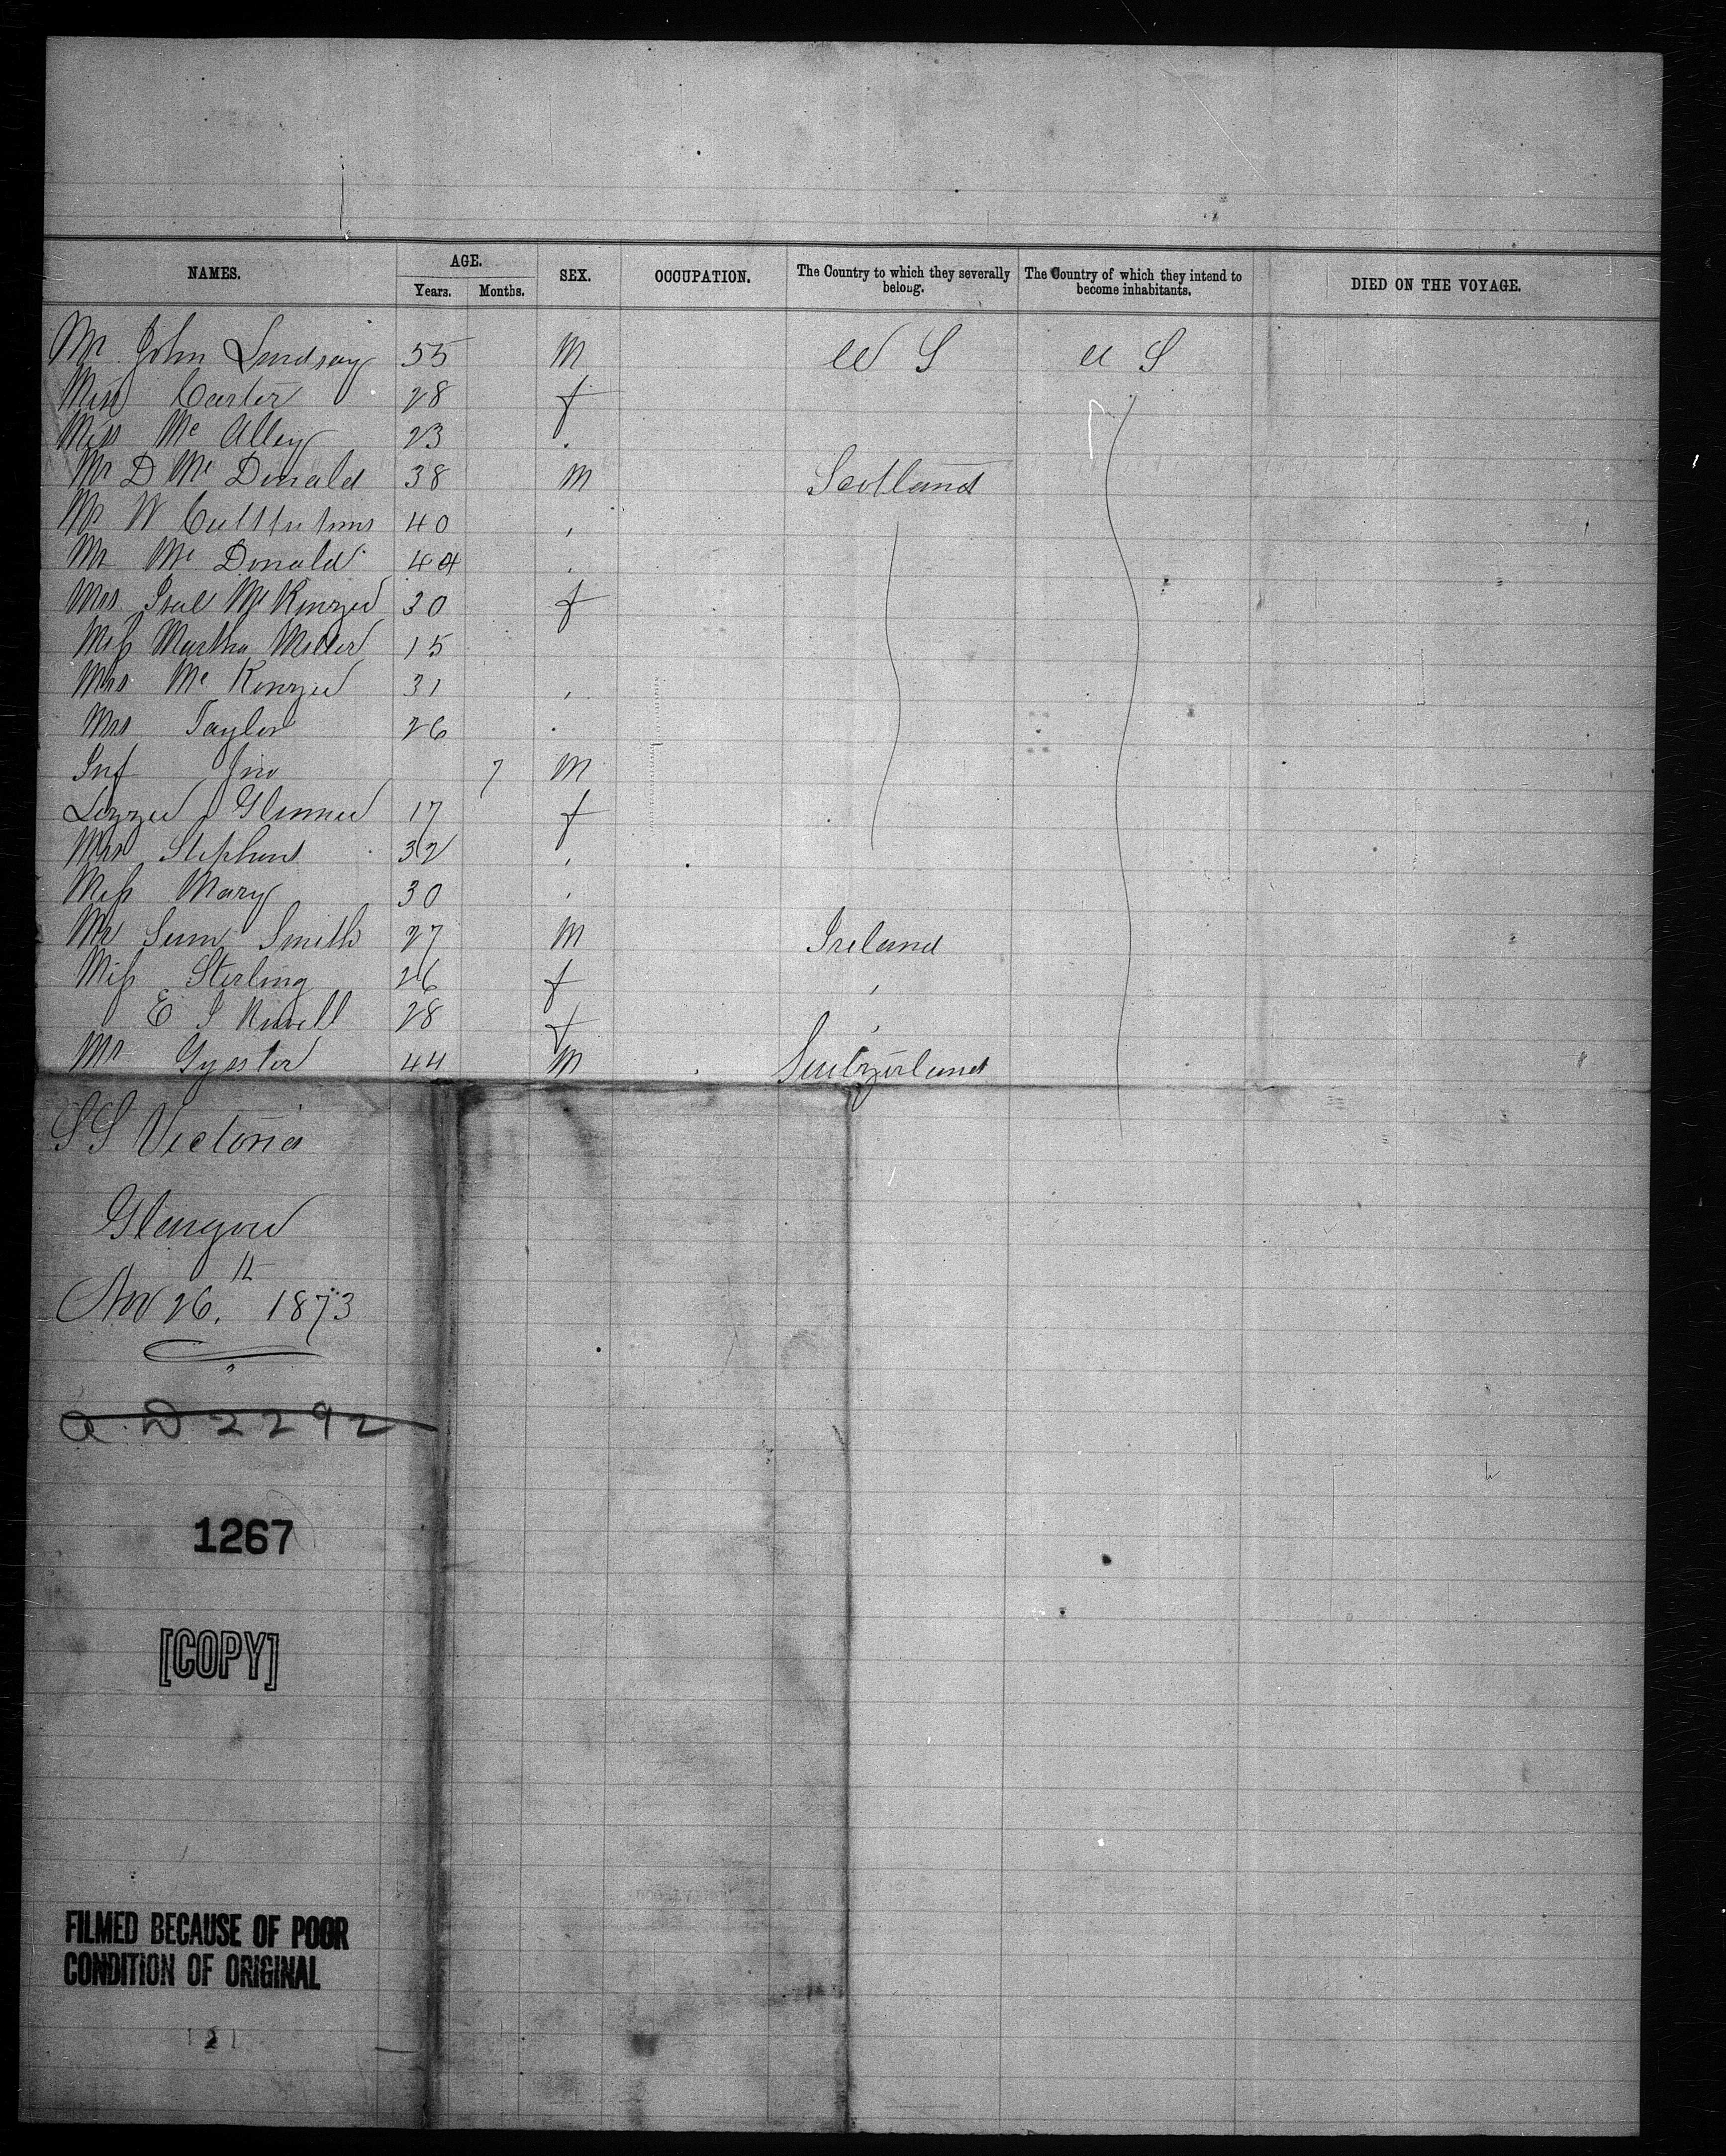 NAMES. AGE. SEX. OCCUPATION. The Country to which they severally belong. The Country of which they intend to become inhabitants. DIED ON THE VOYAGE.
Years. Months.
Mr John Lindsay 55 M U S U S
Miss Carter 28 f
Miss Mc Alley 23 "
Mr D Mc Donald 38 M Scotland
Mr W 40 "
Mr Mc Donald 44 "
Mrs Isal McKenzie 30 f
Miss Martha Miller 15
Mrs Mc Kenzie 31 "
Mrs Taylor 26 "
Inf Jno 7 M
Lizzie 17 f
Mrs Stephens 32 "
Miss Mary 30 "
Mr Saml Smith 27 M Ireland
Miss Sterling 26 f "
E J 28 f "
Mr 44 M Switzerland
SS Victoria
Glasgow
Nov 26th, 1873
2292
1267
[COPY]
FILMED BECAUSE OF POOR
CONDITION OF ORIGINAL